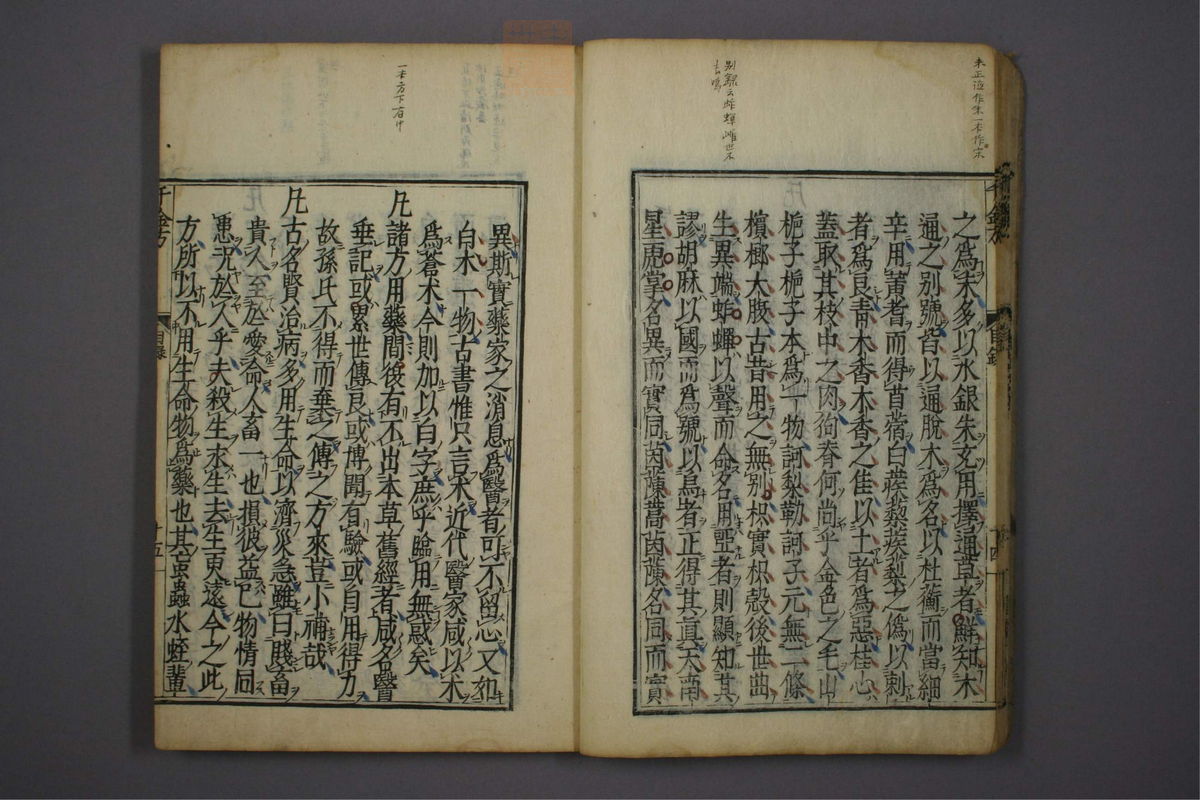 未正這作朱一本作宋
別録云蚱蟬雌世不
去鳴
之爲朱多以水銀朱充用擇通草者鮮知木
通之別號皆以通脫木爲名以杜蘅而當細
辛用黃耆而得苜蓿白蒺蔾蒺蔾之僞以刺
者爲良青木香木香之佳以土者爲惡桂心
蓋取其枝中之肉狗脊何尚乎金色之毛山
梔子梔子本爲一物訶梨勒訶子元無二條
檳榔大腹古昔用之無別枳實枳殼後世曲
生異端蚱蟬以聲而命名用瘂者則顯知其
謬胡麻以國而爲號以烏者正得其眞天南
星虎掌名異而實同茵蔯蒿茵蔯名同而實
千金方
目録
十四
一本方下有什
異斯實藥家之消息爲醫者可不留心又如
白木一物古書惟只言朮近代醫家咸以朮
爲蒼朮今則加以白字庶乎臨用無惑矣
凡諸方用藥間復有不出本草舊經者咸名醫
垂記或累世傳良或博聞有驗或自用得力
故孫氏不得而棄之傳之方來豈小補哉
凡古名賢治病多用生命以濟災急雖曰賤畜
貴人至於愛命人畜一也損彼益己物情同
患況於人乎夫殺生求生去生更遠今之此
方所以不用生命物爲藥也其宝蟲水蛭輩
千金方
目録
十五